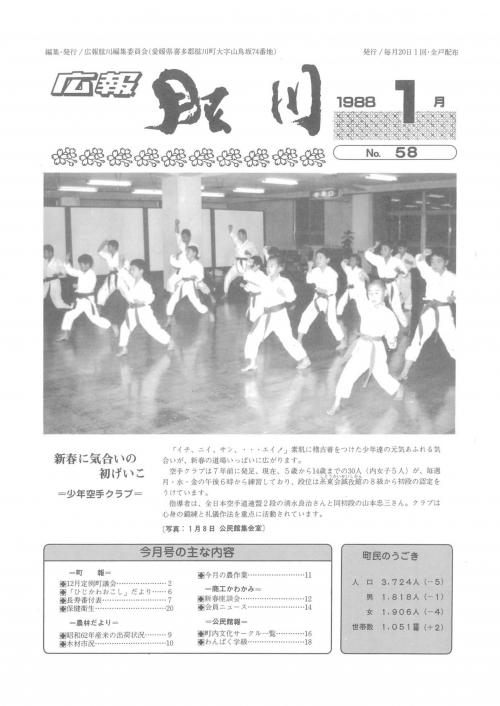 編集・発行／広報肱川編集委員会(愛媛県喜多郡肱川町大字山鳥坂74番地)
発行／毎月20日1回・全戸配布
広報 肱川
1988 1月
No. 58
新春に気合いの
初げいこ
＝少年空手クラブ＝
「イチ、ニイ、サン、・・・エイ！」素肌に稽古着をつけた少年達の元気あふれる気
合いが、新春の道場いっぱいに広がります。
空手クラブは7年前に発足、現在、5歳から14歳までの30人（内女子5人）が、毎週
月・水・金の午後6時から練習しており、段位は糸東会誠武館の8級から初段の認定を
うけています。
指導者は、全日本空手道連盟2段の清水良治さんと同初段の山本忠三さん。クラブは
心身の鍛練と礼儀作法を重点に活動されています。
〔写真：1月8日 公民館集会室〕
今月号の主な内容
＝町 報＝
※12月定例町議会………………2
※「ひじかわおこし」だより……6
※長寿番付表……………………7
※保健衛生………………………20
＝農林だより＝
※昭和62年産米の出荷状況………9
※木材市況………………………10
※今月の農作業…………………11
＝商工かわかみ＝
※新春座談会……………………12
※会員ニュース…………………14
＝公民館報＝
※町内文化サークル一覧………16
※わんぱく学級…………………18
町民のうごき
人 口 3,724人(−5)
男 1,818人(−1)
女 1,906人(−4)
世帯数 1,051(＋2)